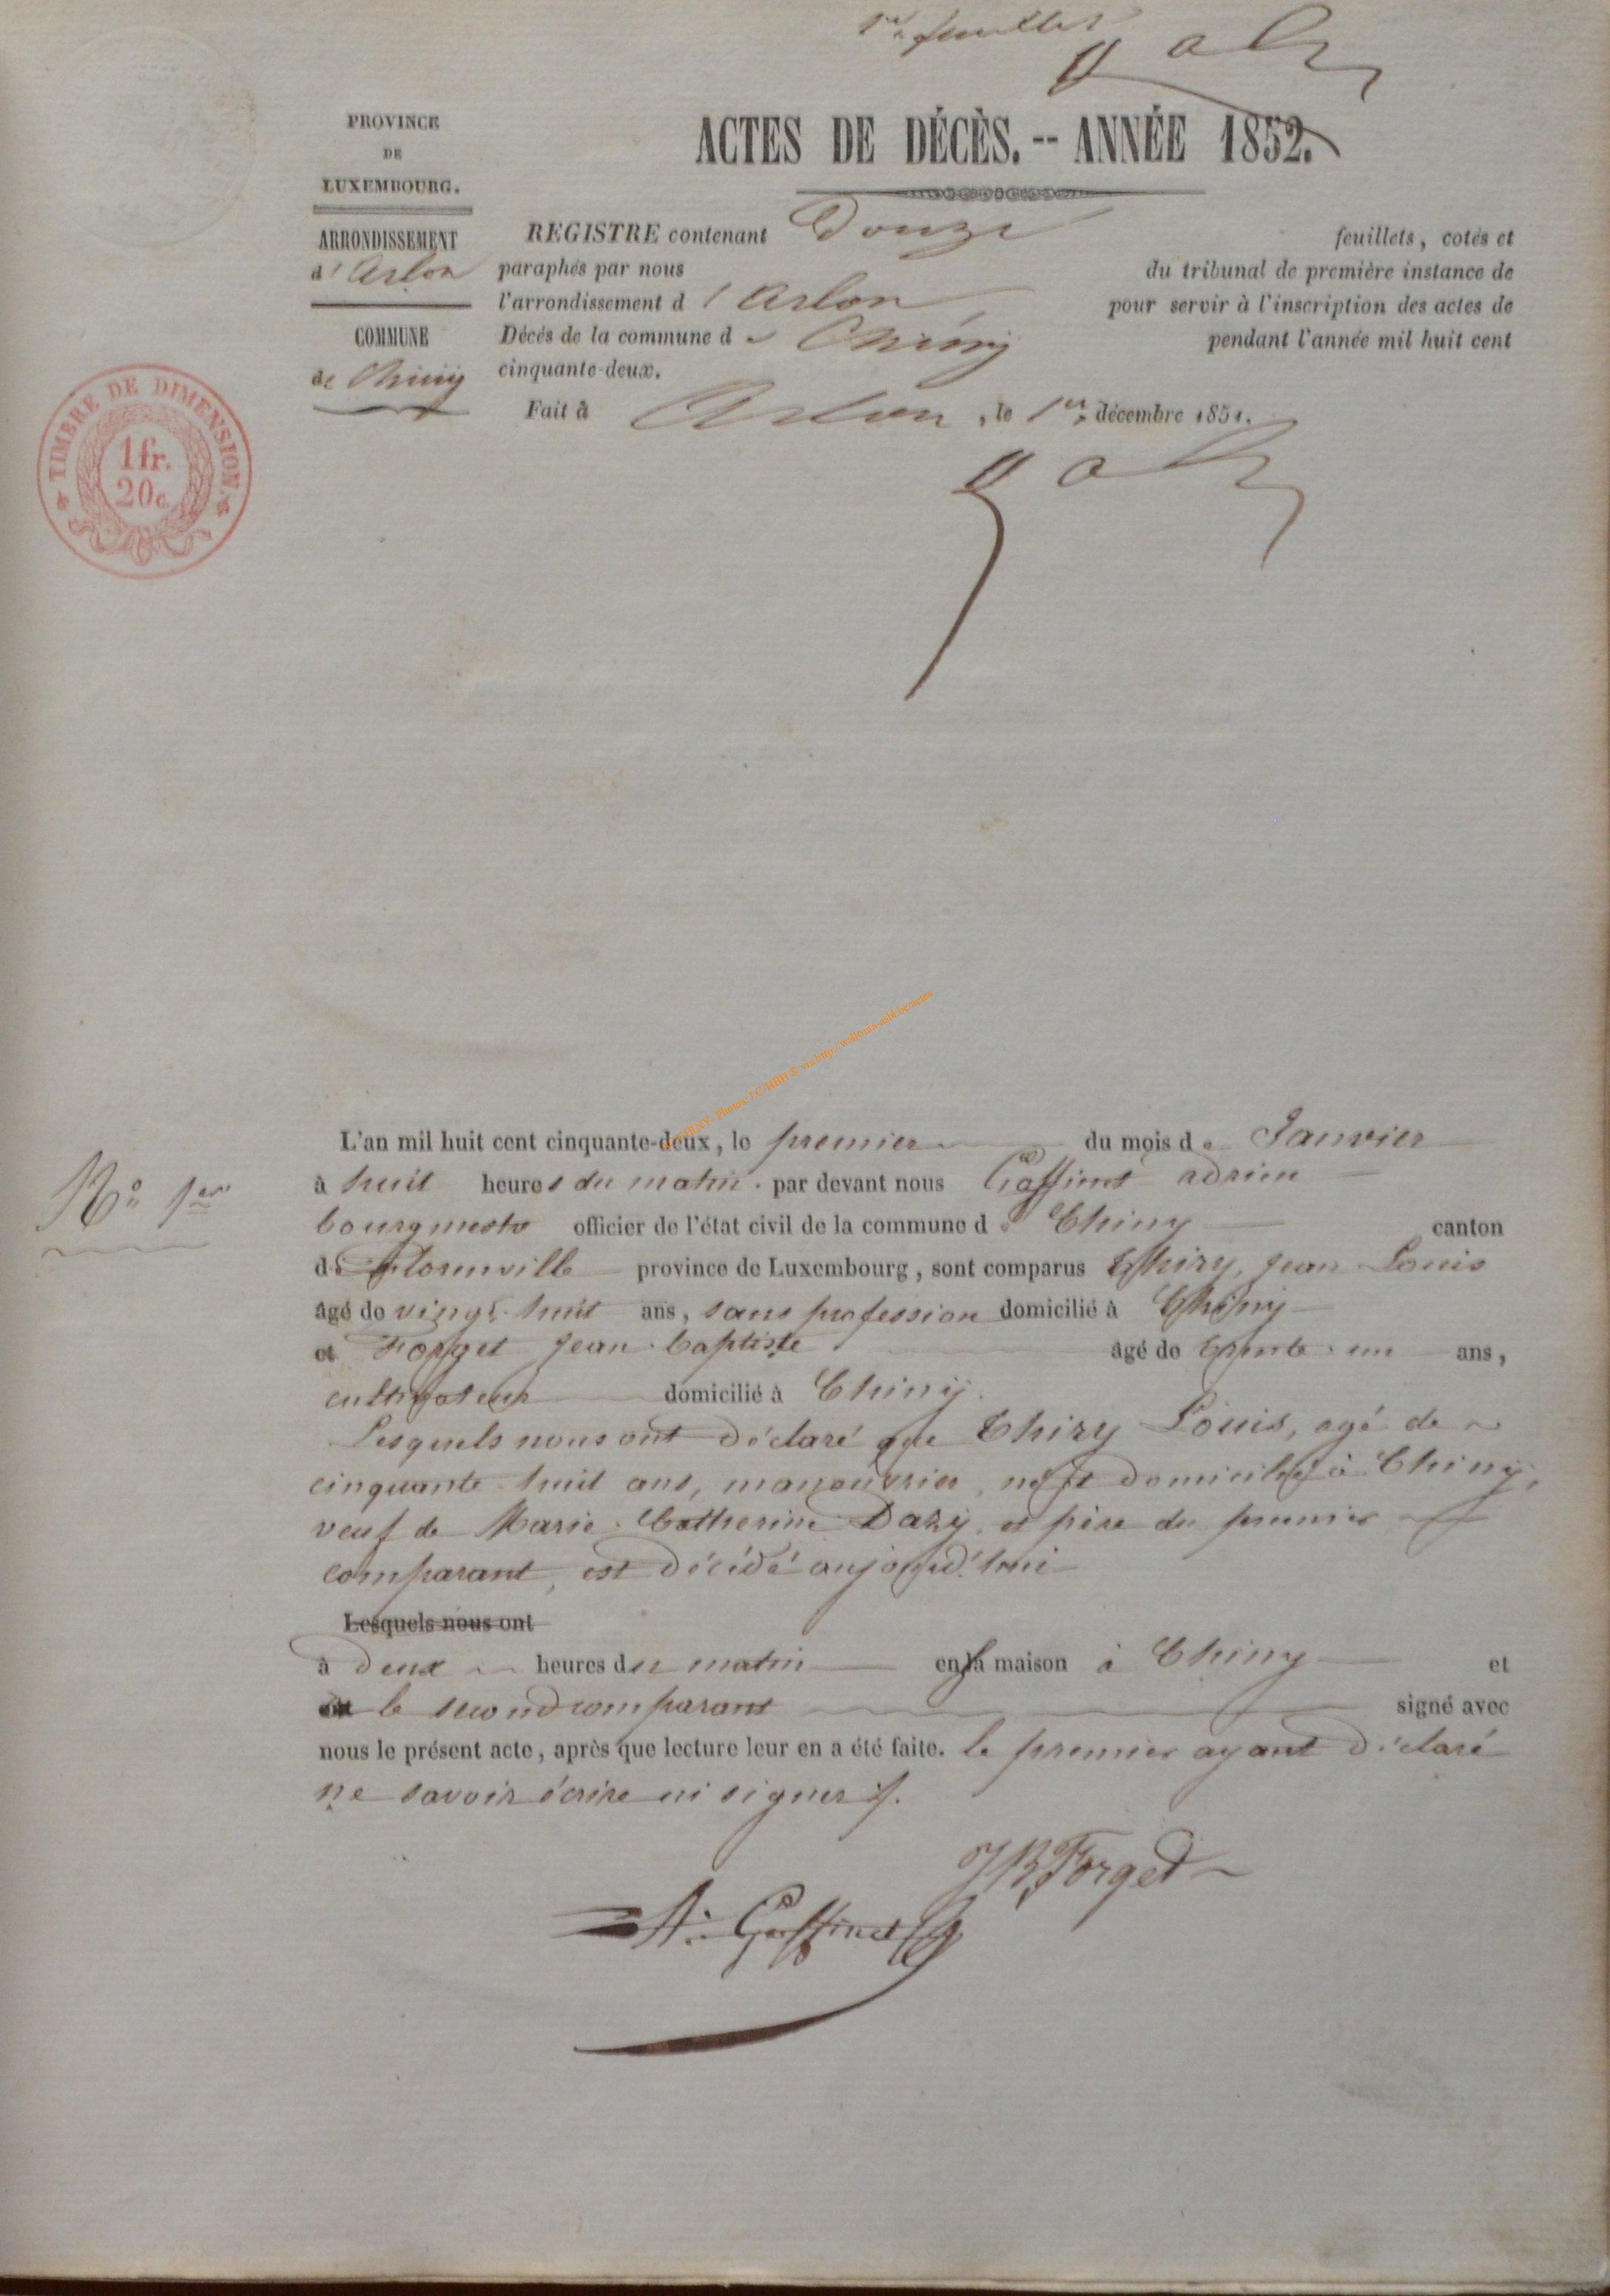 1er feuillet
PROVINCE
DE
LUXEMBOURG.
ARRONDISSEMENT
d'Arlon
COMMUNE
de Chiny
ACTES DE DÉCÈS. -- ANNÉE 1852.
REGISTRE contenant Douze feuillets, cotés et
paraphés par nous du tribunal de première instance de
l'arrondissement d'Arlon pour servir à l'inscription des actes de
Décés de la commune de Chiny pendant l'année mil huit cent
cinquante-deux.
Fait à Arlon, le 1er décembre 1851.
TIMBRE DE DIMENSION.
1 fr.
20c
No 1er
L'an mil huit cent cinquante-deux, le premier du mois de Janvier
à huit heures du matin. par devant nous Gaffinet adrien
bourgmestre officier de l'état civil de la commune de Chiny canton
de Florenville province de Luxembourg, sont comparus Thiry, Jean Louis
âgé de vingt-huit ans, sans profession domicilié à Chiny
et Forget Jean-baptiste âgé de trente-un ans,
cultivateur domicilié à Chiny.
Lesquels nous ont déclaré que Thiry Louis, agé de
cinquante-huit ans, manouvrier, né et domicilié à Chiny,
veuf de Marie-Catherine Dazy, et père du premier
comparant, est décédé aujourd'hui
Lesquels nous ont
à deux heures du matin en sa maison à Chiny et
le second comparant signé avec
nous le présent acte, après que lecture leur en a été faite. le premier ayant déclaré
ne savoir écrire ni signer.
JB Forget
A. Gaffinet